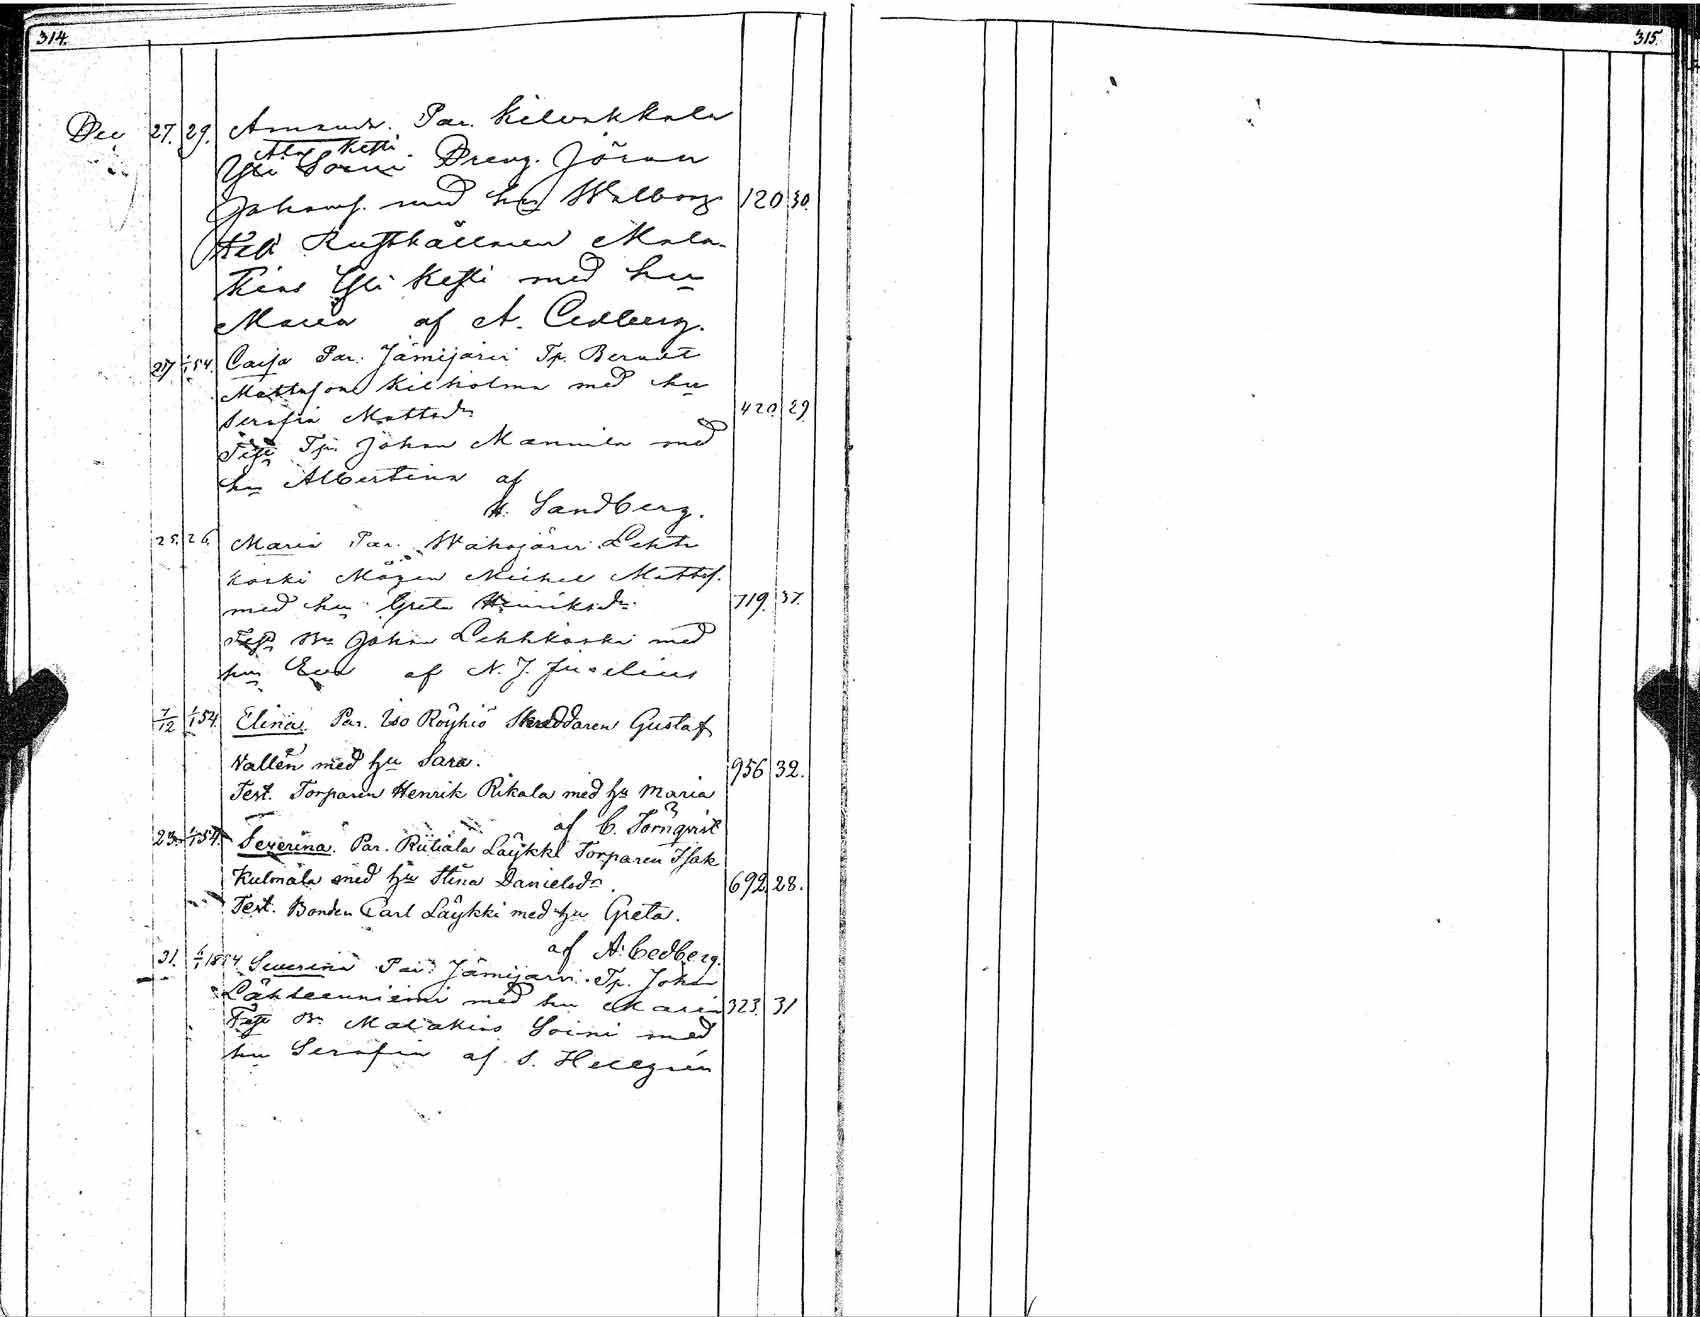 314.
315.
Dec 27. 29. Amanda. Par. Kilvakkala
Ala Kesti
Yli Soini Dreng. Jöran
Johansf. med hu Walborg 120 30.
Test Rusthållaren Mala-
kias Yli Kesti med hu
Maria af A. Cedberg.
27 1/1 54. Caisa Par. Jämijärvi Tp. Berndt
Mattsson Kilholma med hu
Serafia Mattsdr 420. 29
Test Tp. Johan Mannila med
hu Albertina af
H. Sandberg.
25. 26. Maria Par. Wahojärvi Leht
koski Mågen Michel Mattsf.
med hu Greta Henriksdr. 719. 37.
Test Bn Johan Lehtkoski med
hu Eva af N. J. Juselius
7/12 1/1 54. Elina. Par. Iso Röyhiö Skreddaren Gustaf
Vallen med hu Sara. 956 32.
Test. Torparen Henrik Rikala med hu Maria
af C. Tornqvist
23. 1/1 54. Severina. Par. Riitiala Läykki Torparen Isak
Kulmala med hu Stina Danielsdr. 692. 28.
Test. Bonden Carl Läykki med hu Greta.
af A. Cedberg.
31. 6/1 1854 Severina Par. Jämijärvi. Tp. Johan
Lähteenniemi med hu Maria 323. 31
Test Bn Malakias Soini med
hu Serafia af S. Hellgrén